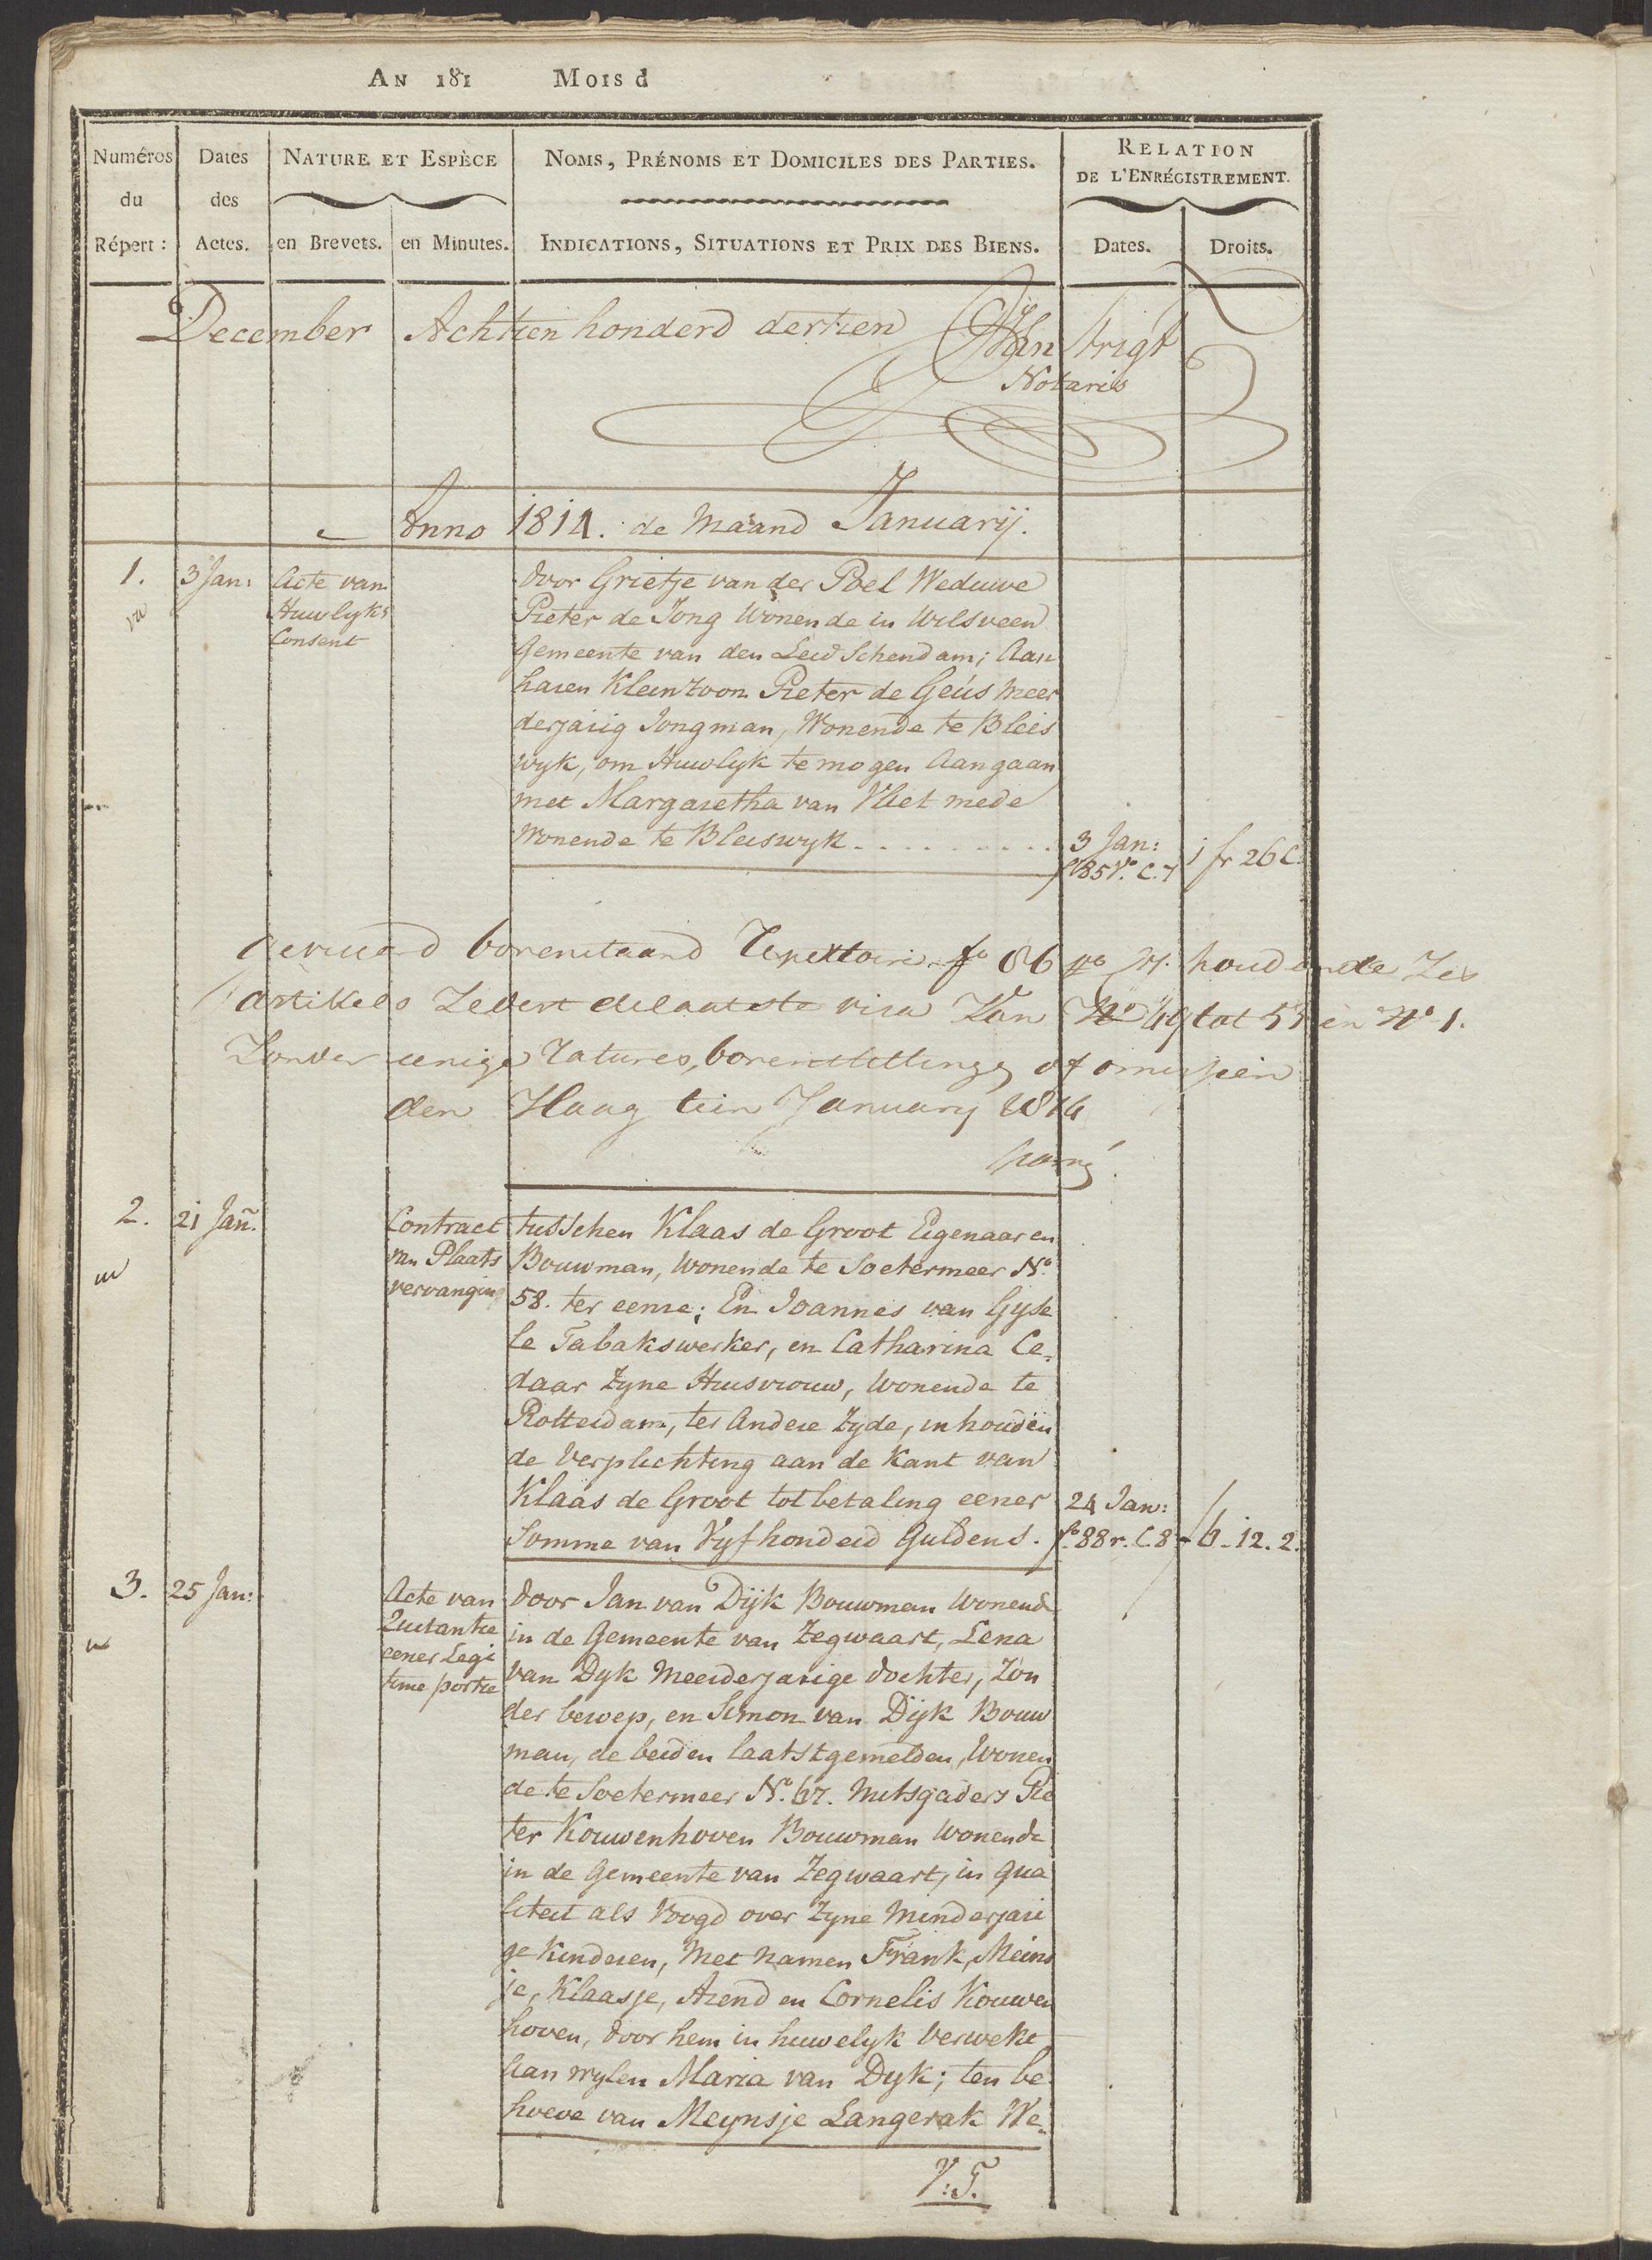 AN 181 MOIS d
Numéros du Répert :
Dates des Actes.
NATURE ET ESPÈCE
en Brevets. en Minutes.
NOMS, PRÉNOMS ET DOMICILES DES PARTIES.
INDICATIONS, SITUATIONS ET PRIX DES BIENS.
RELATION
DE L'ENRÉGISTREMENT.
Dates. Droits.
December Achtien honderd dertien
Van trigt
Notaris
Anno 1814. de Maand Januarij.
1. 3 Jan:
Acte van
Huwlyks
Consent
door Grietje van der Poel Weduwe
Pieter de Jong Wonende in Wilsveen
Gemeente van den Leidschendam; Aan
haren Kleinzoon Pieter de Geús meer
derjarig Jongman, Wonende te Bleis
wyk, om Huwlyk te mogen Aangaan
met Margaretha van Vliet mede
Wonende te Bleiswyk . . . . . . . . .
3 Jan:
fo 85 Vo. C. 7
1 fr 26 C.
bovenstaand Repertoire fo 86 houdende Zes
artikels Zedert de laatste visa Van No 49 tot 53 en No 1.
Zonder eenige ratures, of omissien
den Haag tien January 1814
2. 21 Jañ.
Contract
van Plaats
vervanging
tusschen Klaas de Groot Eigenaar en
Bouwman, Wonende te Soetermeer No.
58. ter eenre; En Joannes van Gyse
le Tabakswerker, en Catharina Ce=
daar Zyne Huisvrouw, Wonende te
Rotterdam, ter Andere Zyde, inhouden
de Verplichting aan de Kant van
Klaas de Groot tot betaling eener
Somme van Vyfhonderd Guldens.
24 Jan:
fo. 88 r. C. 8
6. 12. 2.
3. 25 Jan:
Acte van
Quitantie
eener Legi
time portie
door Jan van Dijk Bouwman Wonende
in de Gemeente van Zegwaart, Lena
van Dyk Meerderjarige dochter, Zon
der beroep, en Simon van Dijk Bouw
man, de beiden laatstgemelden, Wonen
de te Soetermeer No. 67. Mitsgaders Pie
ter Kouwenhoven Bouwman Wonende
in de Gemeente van Zegwaart, in qua
liteit als Voogd over Zyne Minderjari
ge Kinderen, Met namen Frank, Meins
je, Klaasje, Arend en Cornelis Kouwen
hoven, door hem in huwelyk Verwekt
Aan wylen Maria van Dyk; ten be
hoeve van Meynsje Langerak We=
V: T.